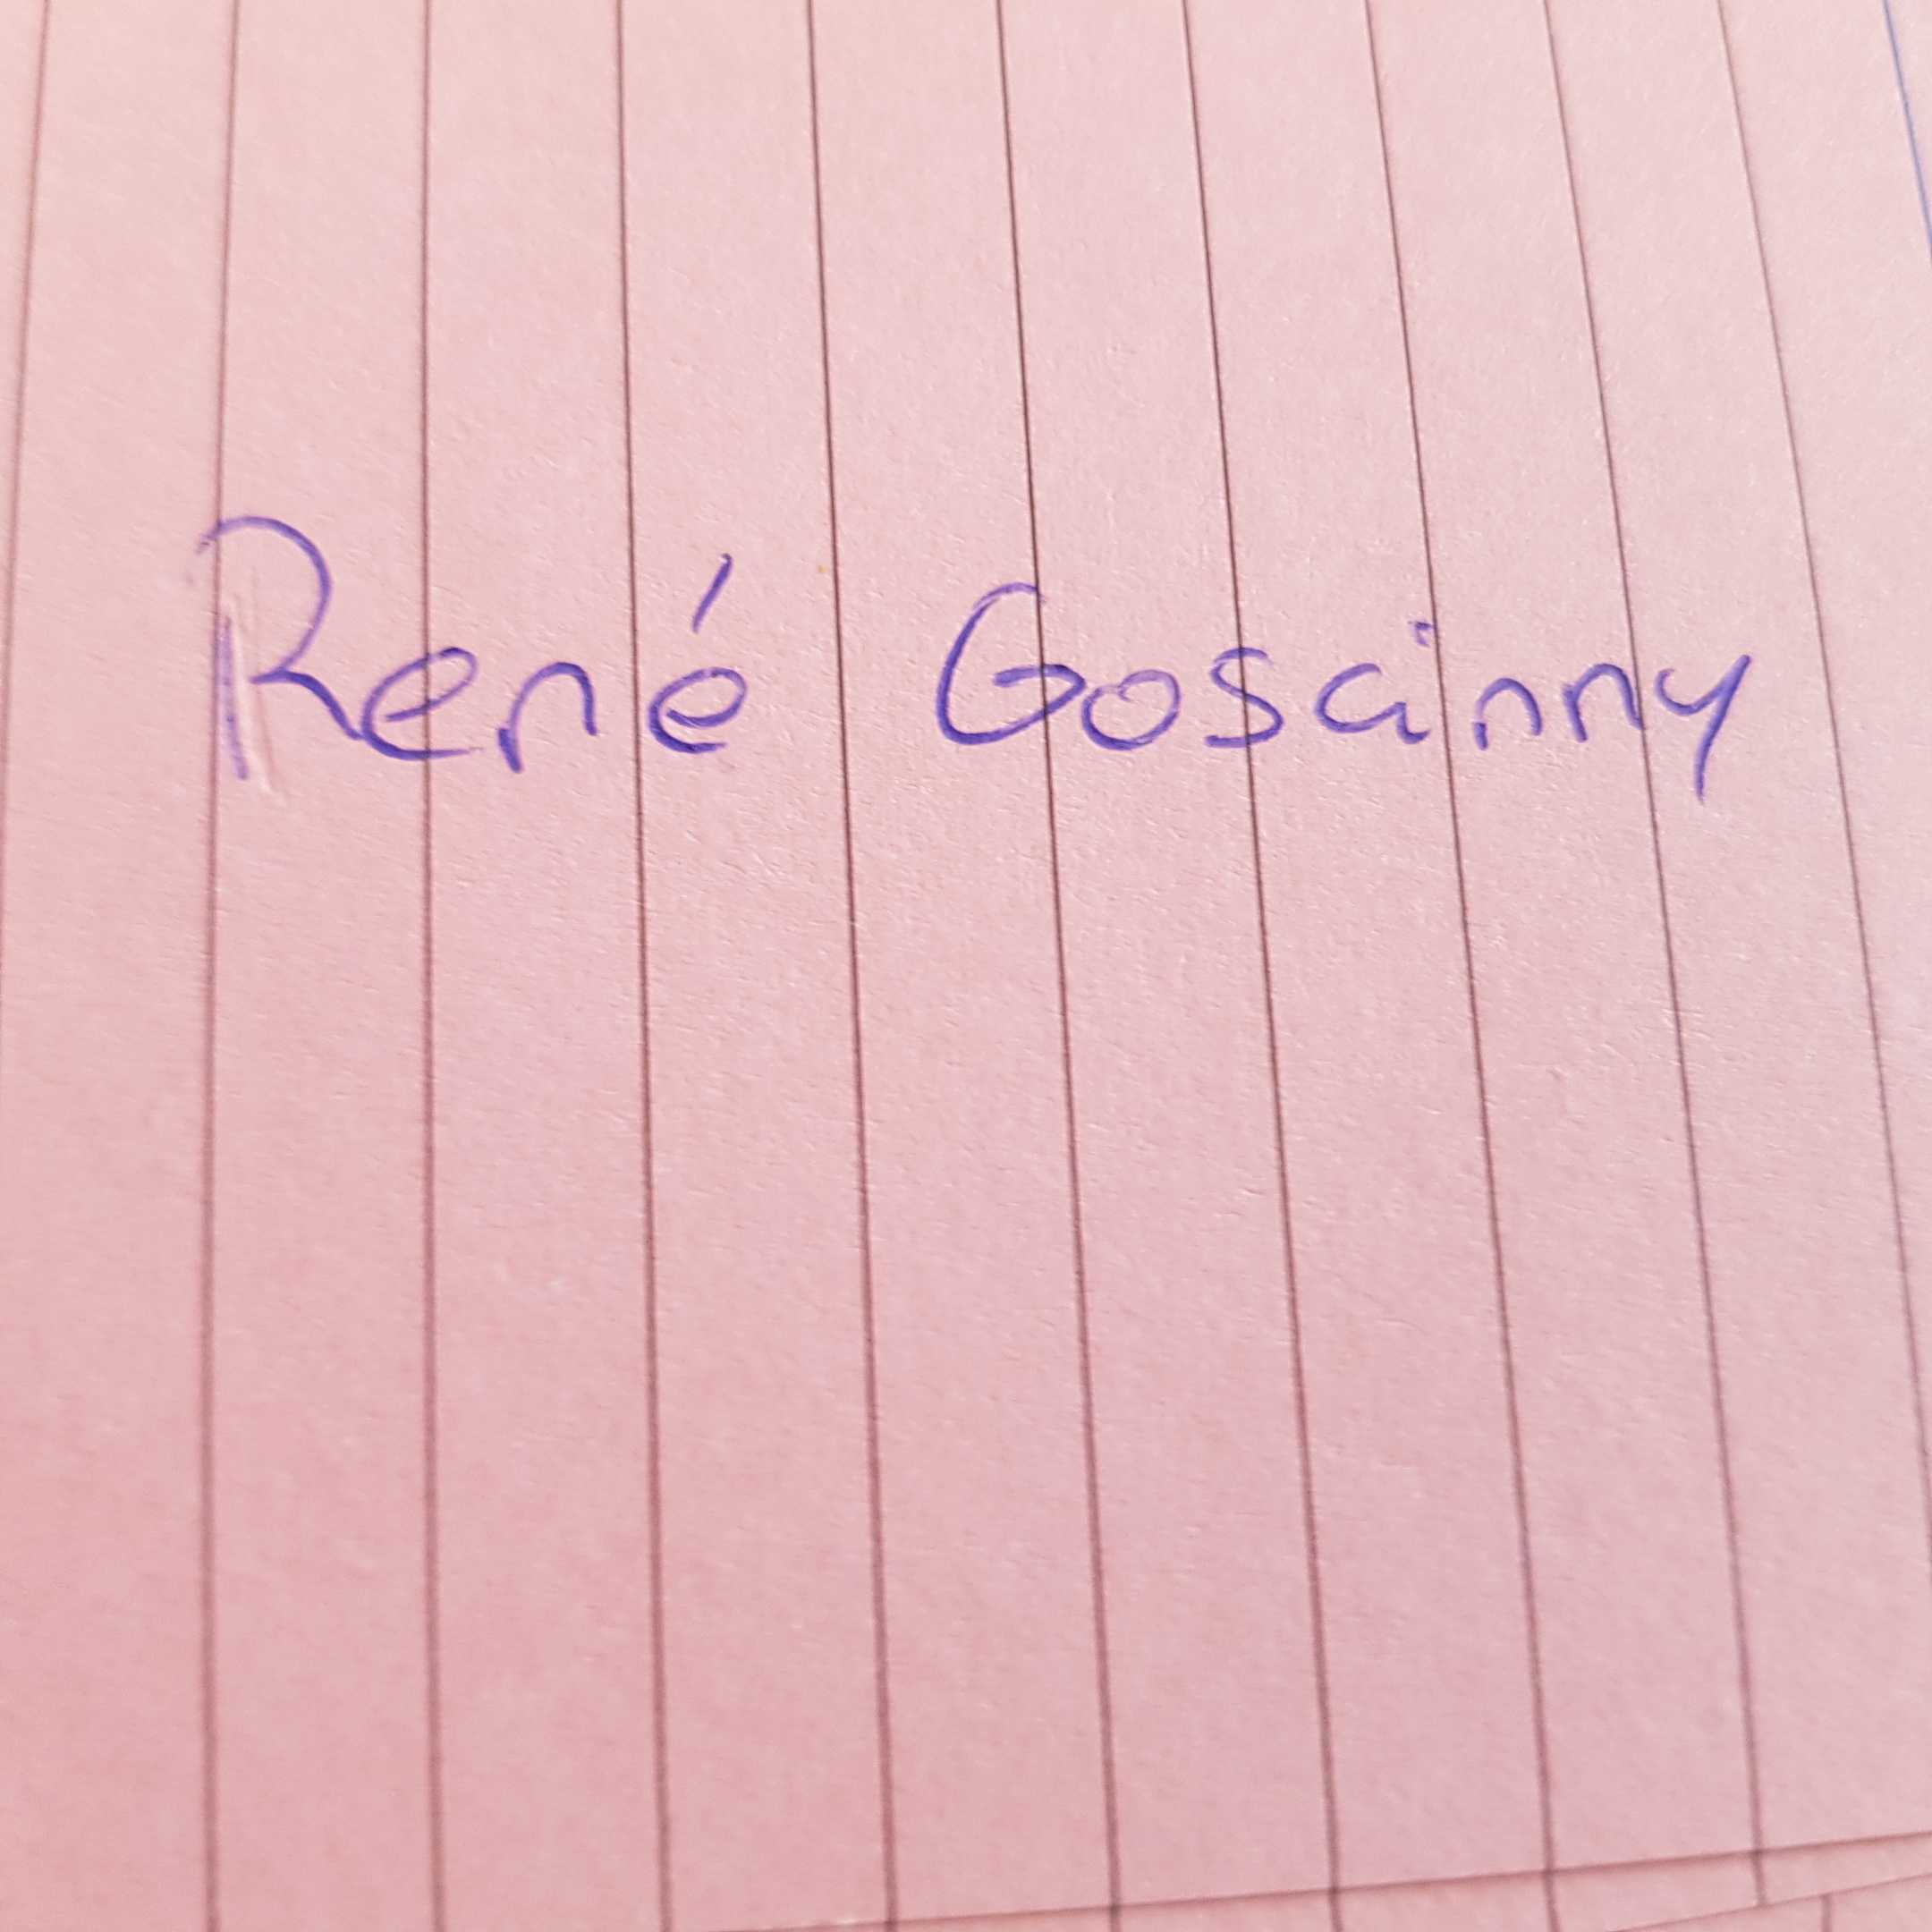 René Goscinny